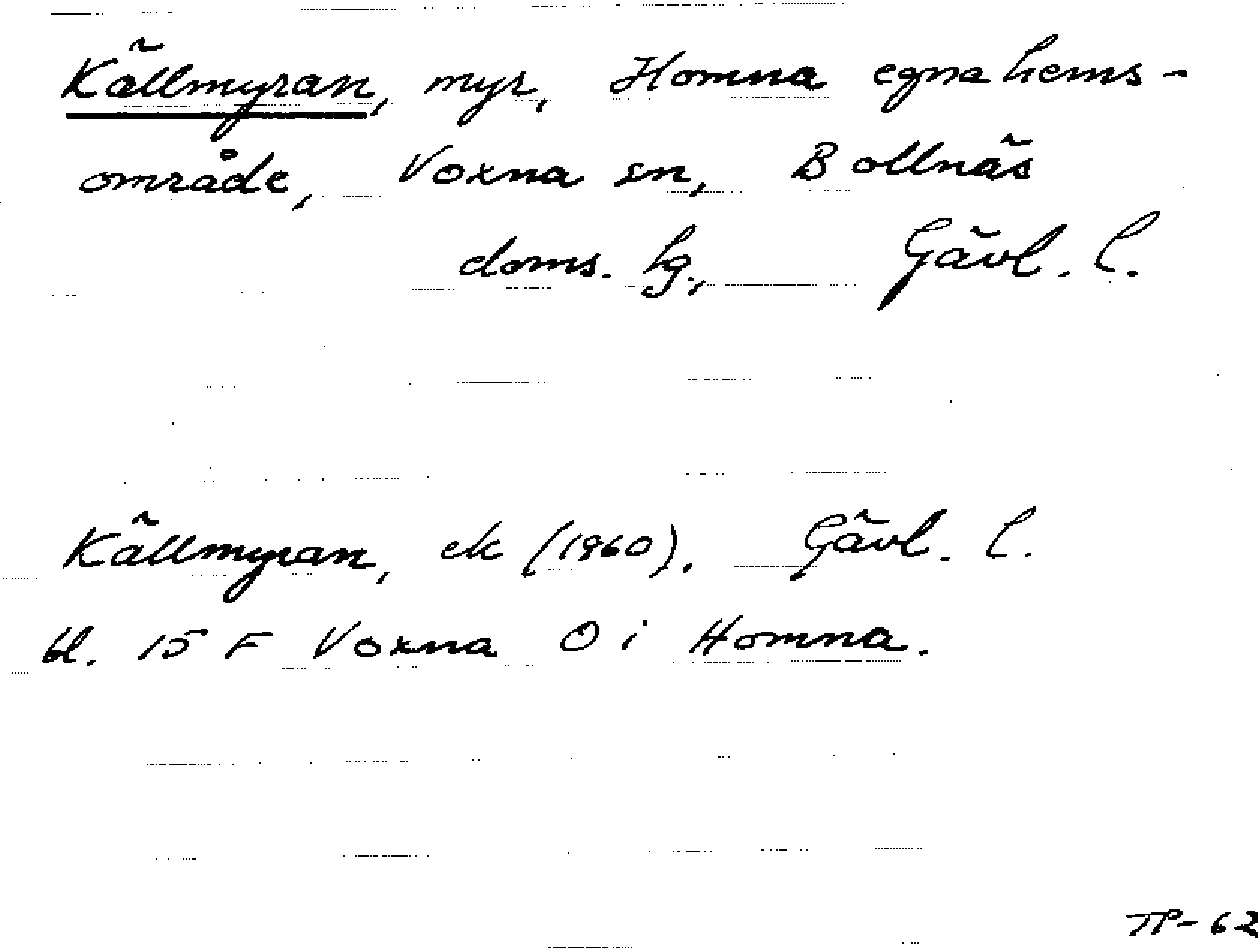 Källmyran, myr, Homna egnahems-
område, Voxna sn, Bollnäs
doms. hg., Gävl. l.
Källmyran, ek (1960). Gävl. l.
bl. 15 F Voxna O i Homna.
TP-62